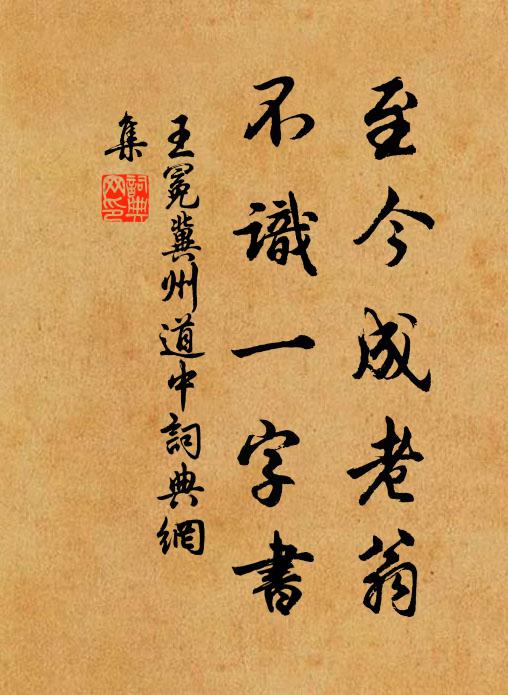 至今成老翁
不識一字書
王冕冀州道中詞典網
集
詞典
网印